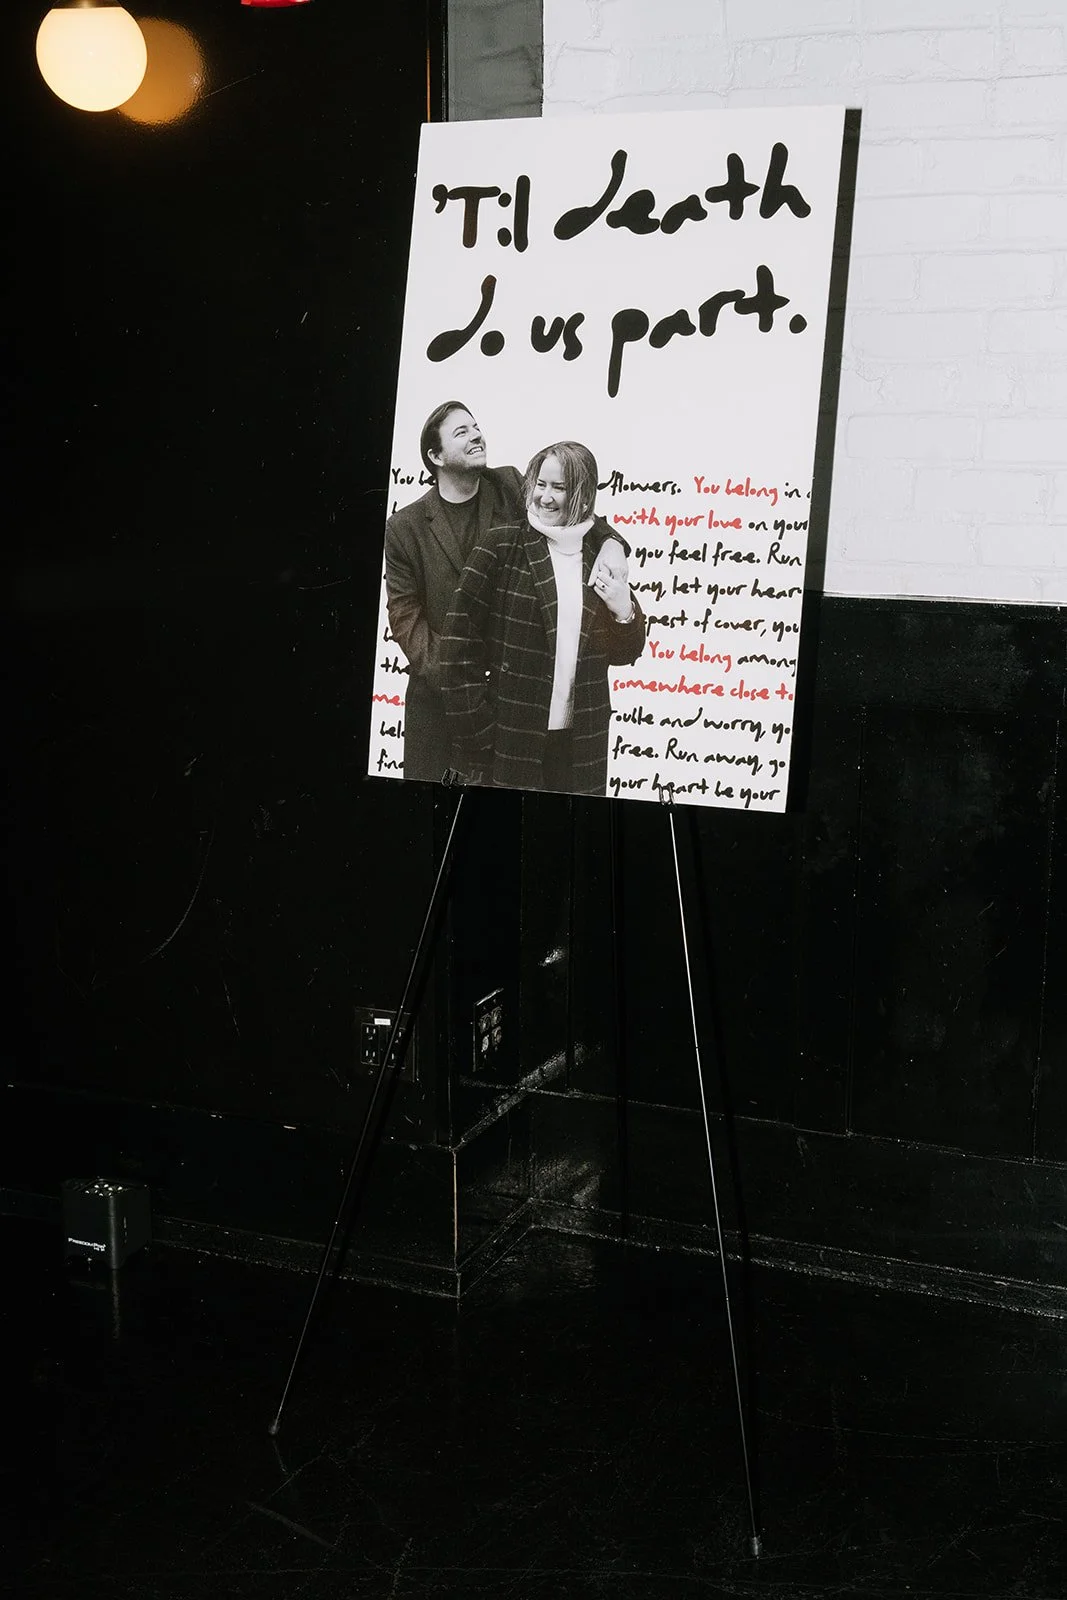 'Til death
do us part.
You be dflowers. You belong in
with your love on your
you feel free. Run
way, let your hear
pest of cover, you
You belong among
the somewhere close to
me. rouble and worry, yo
belo free. Run away, go
find your heart be your
FREEDOMPAR